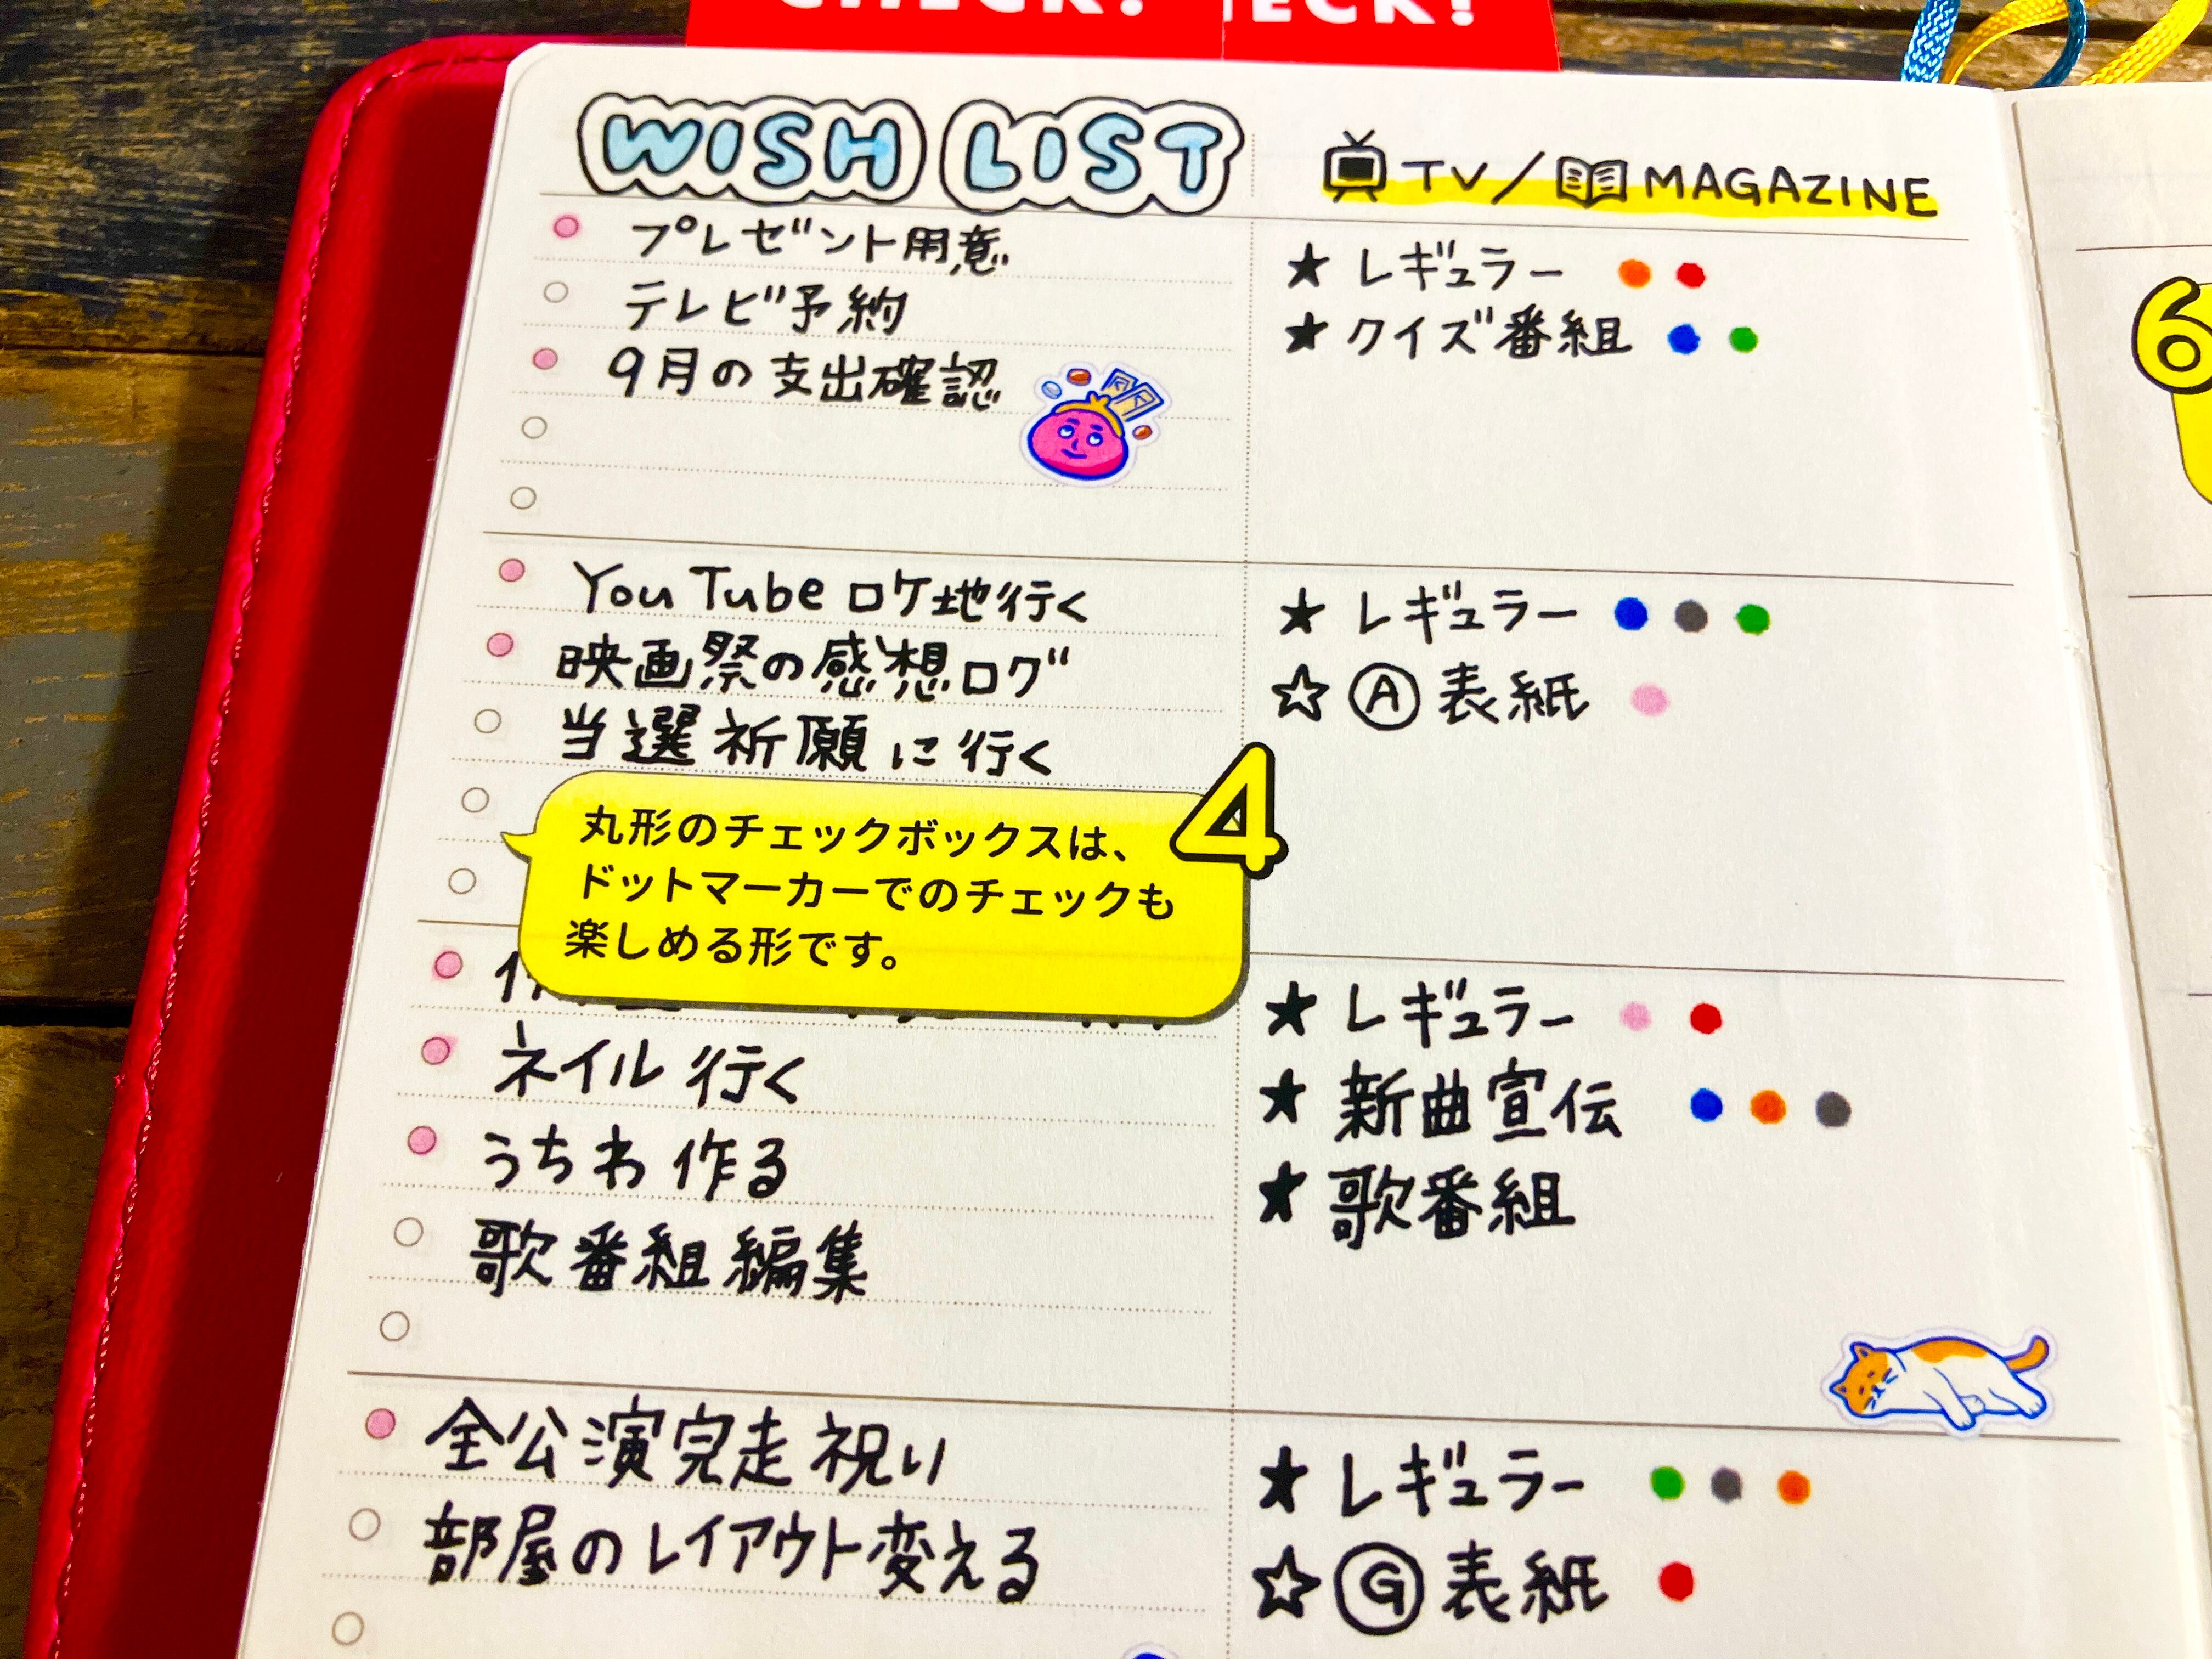 CHECK!
ECK!
WISH LIST
プレゼント用意
テレビ予約
9月の支出確認
YouTube ロケ地行く
映画祭の感想ログ
当選祈願に行く
丸形のチェックボックスは、
ドットマーカーでのチェックも
楽しめる形です。
4
ネイル行く
うちわ作る
歌番組編集
全公演完走祝い
部屋のレイアウト変える
TV/MAGAZINE
★ レギュラー
★ クイズ番組
★ レギュラー
☆ Ⓐ 表紙
★ レギュラー
★ 新曲宣伝
★ 歌番組
★ レギュラー
☆ Ⓖ 表紙
6